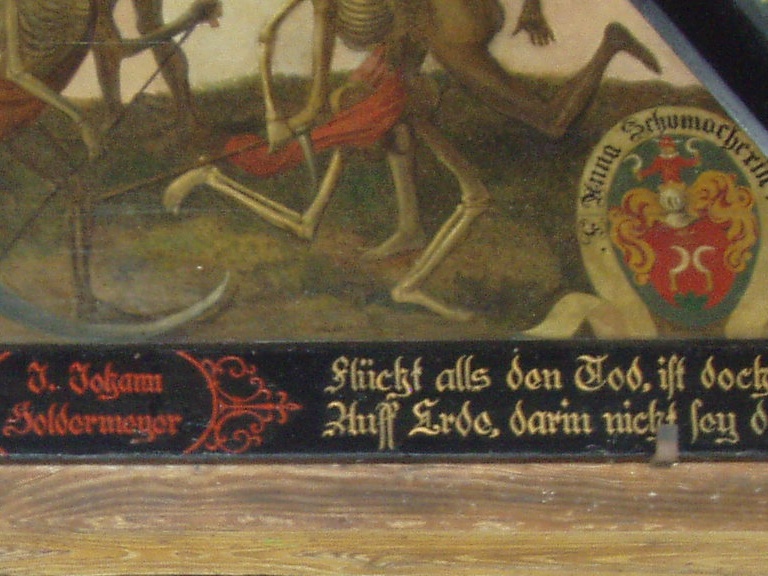 F. Anna Schumacherin
J. Johann
Goldermeyer
Flücht alls den Tod, ist doch
Auff Erde, darin nicht sey d